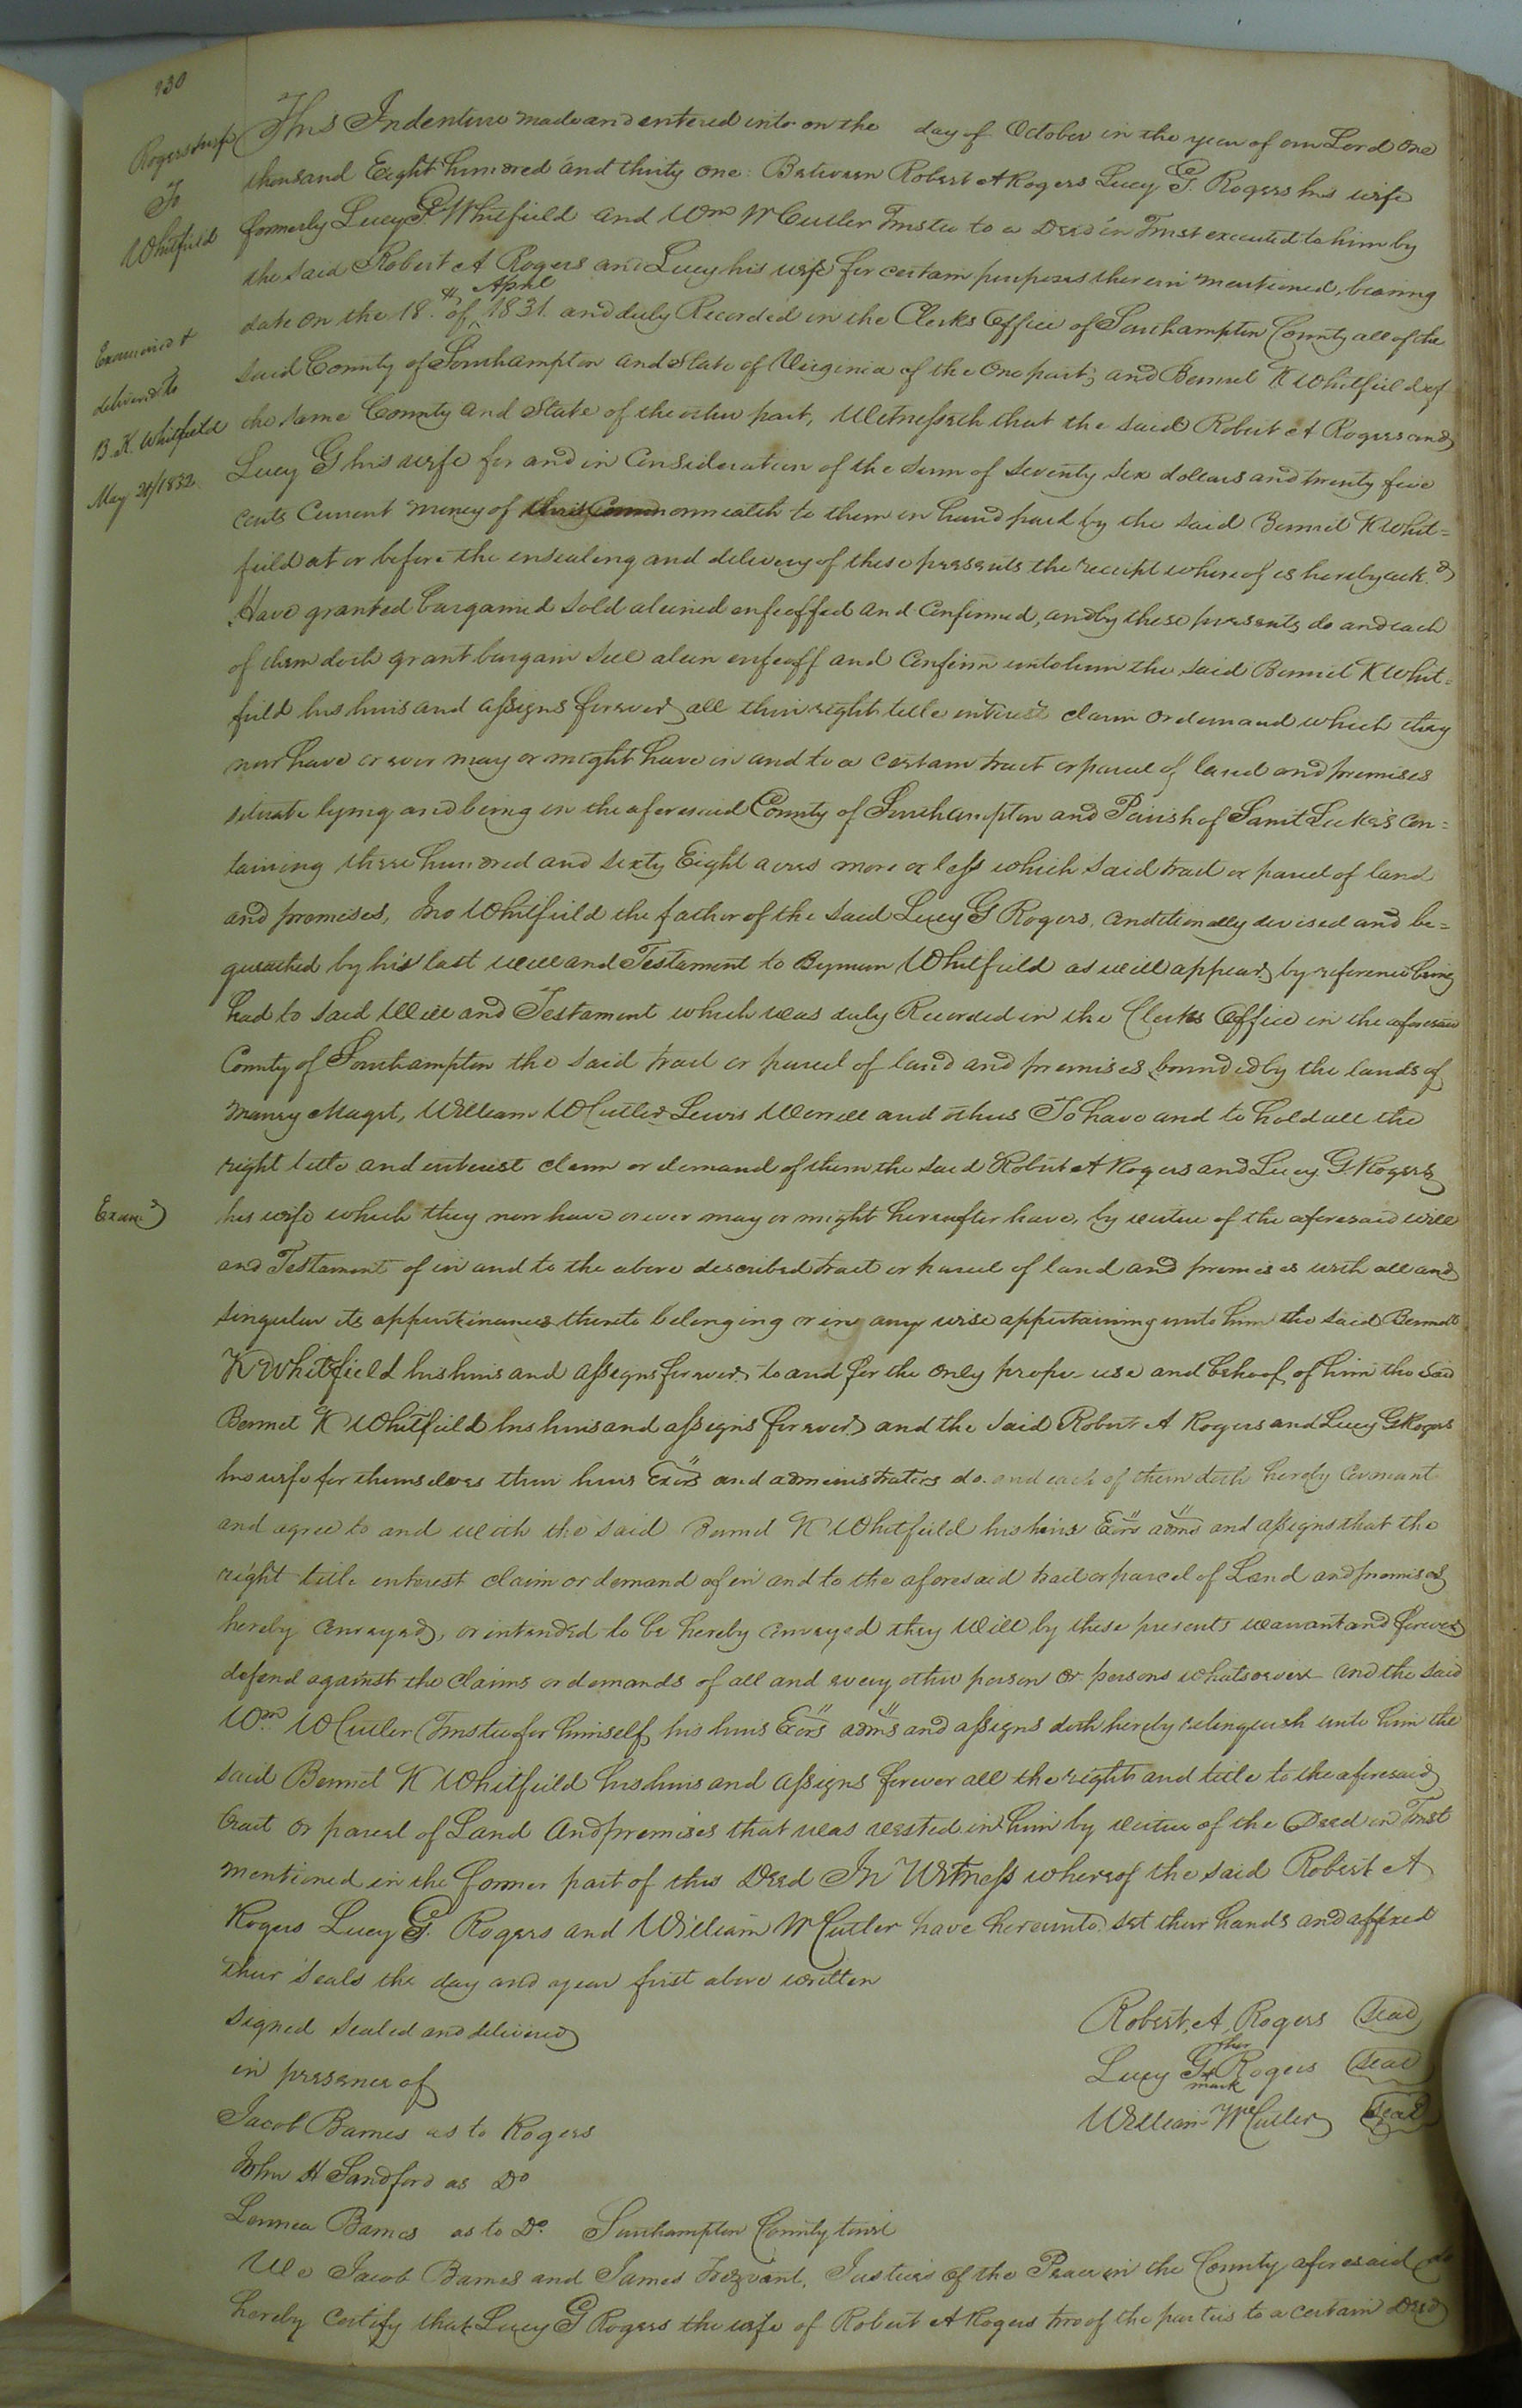 230
Rogers & wife
To
Whitfield
Examined &
delivered to
B. K. Whitfield
May 21/1832
Exam.d
This Indenture made and entered into on the day of October in the year of our Lord one
thousand Eight hundred and thirty one: Between Robert A Rogers Lucy G. Rogers his wife
formerly Lucy G. Whitfield and Wm W Cutler Trustee to a Deed in Trust executed to him by
the said Robert A Rogers and Lucy his wife for certain purposes therein mentioned, bearing
date on the 18.th of April 1831. and duly Recorded in the Clerks Office of Southampton County all of the
said County of Southampton and State of Virginia of the one part; and Bennet K Whitfield of
the same County and State of the other part, Witnesseth that the said Robert A Rogers and
Lucy G his wife for and in Consideration of the sum of seventy six dollars and twenty five
cents Current money of this Commonwealth to them in hand paid by the said Bennet K Whit=
field at or before the ensealing and delivery of these presents the receipt whereof is hereby ack.d
Have granted bargained sold aliened enfeoffed and Confirmed, and by these presents do and each
of them doth grant bargain sell alien enfeoff and Confirm unto him the said Bennet K Whit=
field his heirs and assigns forever, all their right title interest claim or demand which they
now have or ever may or might have in and to a certain tract or parcel of land and premises
situate lying and being in the aforesaid County of Southampton and Parish of Saint Luke's con=
taining three hundred and sixty Eight acres more or less which said tract or parcel of land
and premises, Jno Whitfield the father of the said Lucy G Rogers, conditionally devised and be=
queathed by his last will and Testament to Bynum Whitfield as will appear, by reference being
had to said Will and Testament which was duly Recorded in the Clerks Office in the aforesaid
County of Southampton the said tract or parcel of land and premises bounded by the lands of
Manry Maget, William W Cutler Lewis Worrell and others To have and to hold all the
right title and interest claim or demand of them the said Robert A Rogers and Lucy G. Rogers
his wife which they now have or ever may or might hereafter have, by virtue of the aforesaid will
and Testament of in and to the above described tract or parcel of land and premises with all and
singular its appurtinances thereto belonging or in any wise appertaining unto him the said Bennet
K Whitfield his heirs and assigns forever, to and for the only proper use and behoof of him the said
Bennet K Whitfield his heirs and assigns forever, and the said Robert A Rogers and Lucy G Rogers
his wife for themselves their heirs Exors and administrators do. and each of them doth hereby covenant
and agree to and with the said Bennet K Whitfield his heirs Exors adms and assigns that the
right title interest claim or demand of in and to the aforesaid tract or parcel of Land and premises
hereby conveyed, or intended to be hereby conveyed they will by these presents warrant and forever
defend against the claims or demands of all and every other person or persons whatsoever and the said
Wm W Cutler Trustee for himself, his heirs Exors adms and assigns doth hereby relinquish unto him the
said Bennet K Whitfield his heirs and assigns forever all the right and title to the aforesaid
tract or parcel of Land and premises that was vested in him by virtue of the Deed in Trust
mentioned in the former part of this Deed In Witness whereof the said Robert A
Rogers Lucy G. Rogers and William W Cutler have hereunto set their hands and affixed
their seals the day and year first above written
signed sealed and delivered
in presence of
Jacob Barnes as to Rogers
John H Sandford as Do
as to Do.
Robert, A, Rogers Seal
her
Lucy G + Rogers Seal
mark
William W Cutler Seal
Southampton County towit
We Jacob Barnes and James Trezvant, Justices of the Peace in the County aforesaid do
hereby certify that Lucy G Rogers the wife of Robert A Rogers two of the parties to a certain Deed